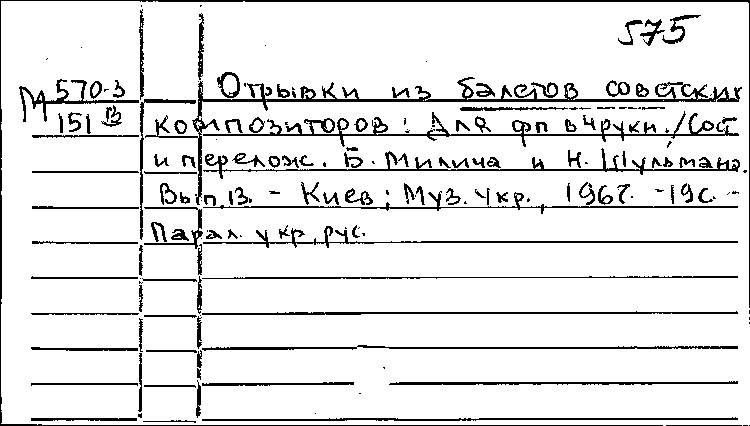 575
М 570-3 Отрывки из балетов советских
151 В композиторов: Для фп в 4 руки. / Сост
и перелож. Б. Милича и Н. Шульмана.
Вып. В. - Киев; Муз. Укр., 1967. - 19с. -
Парал. укр., рус.